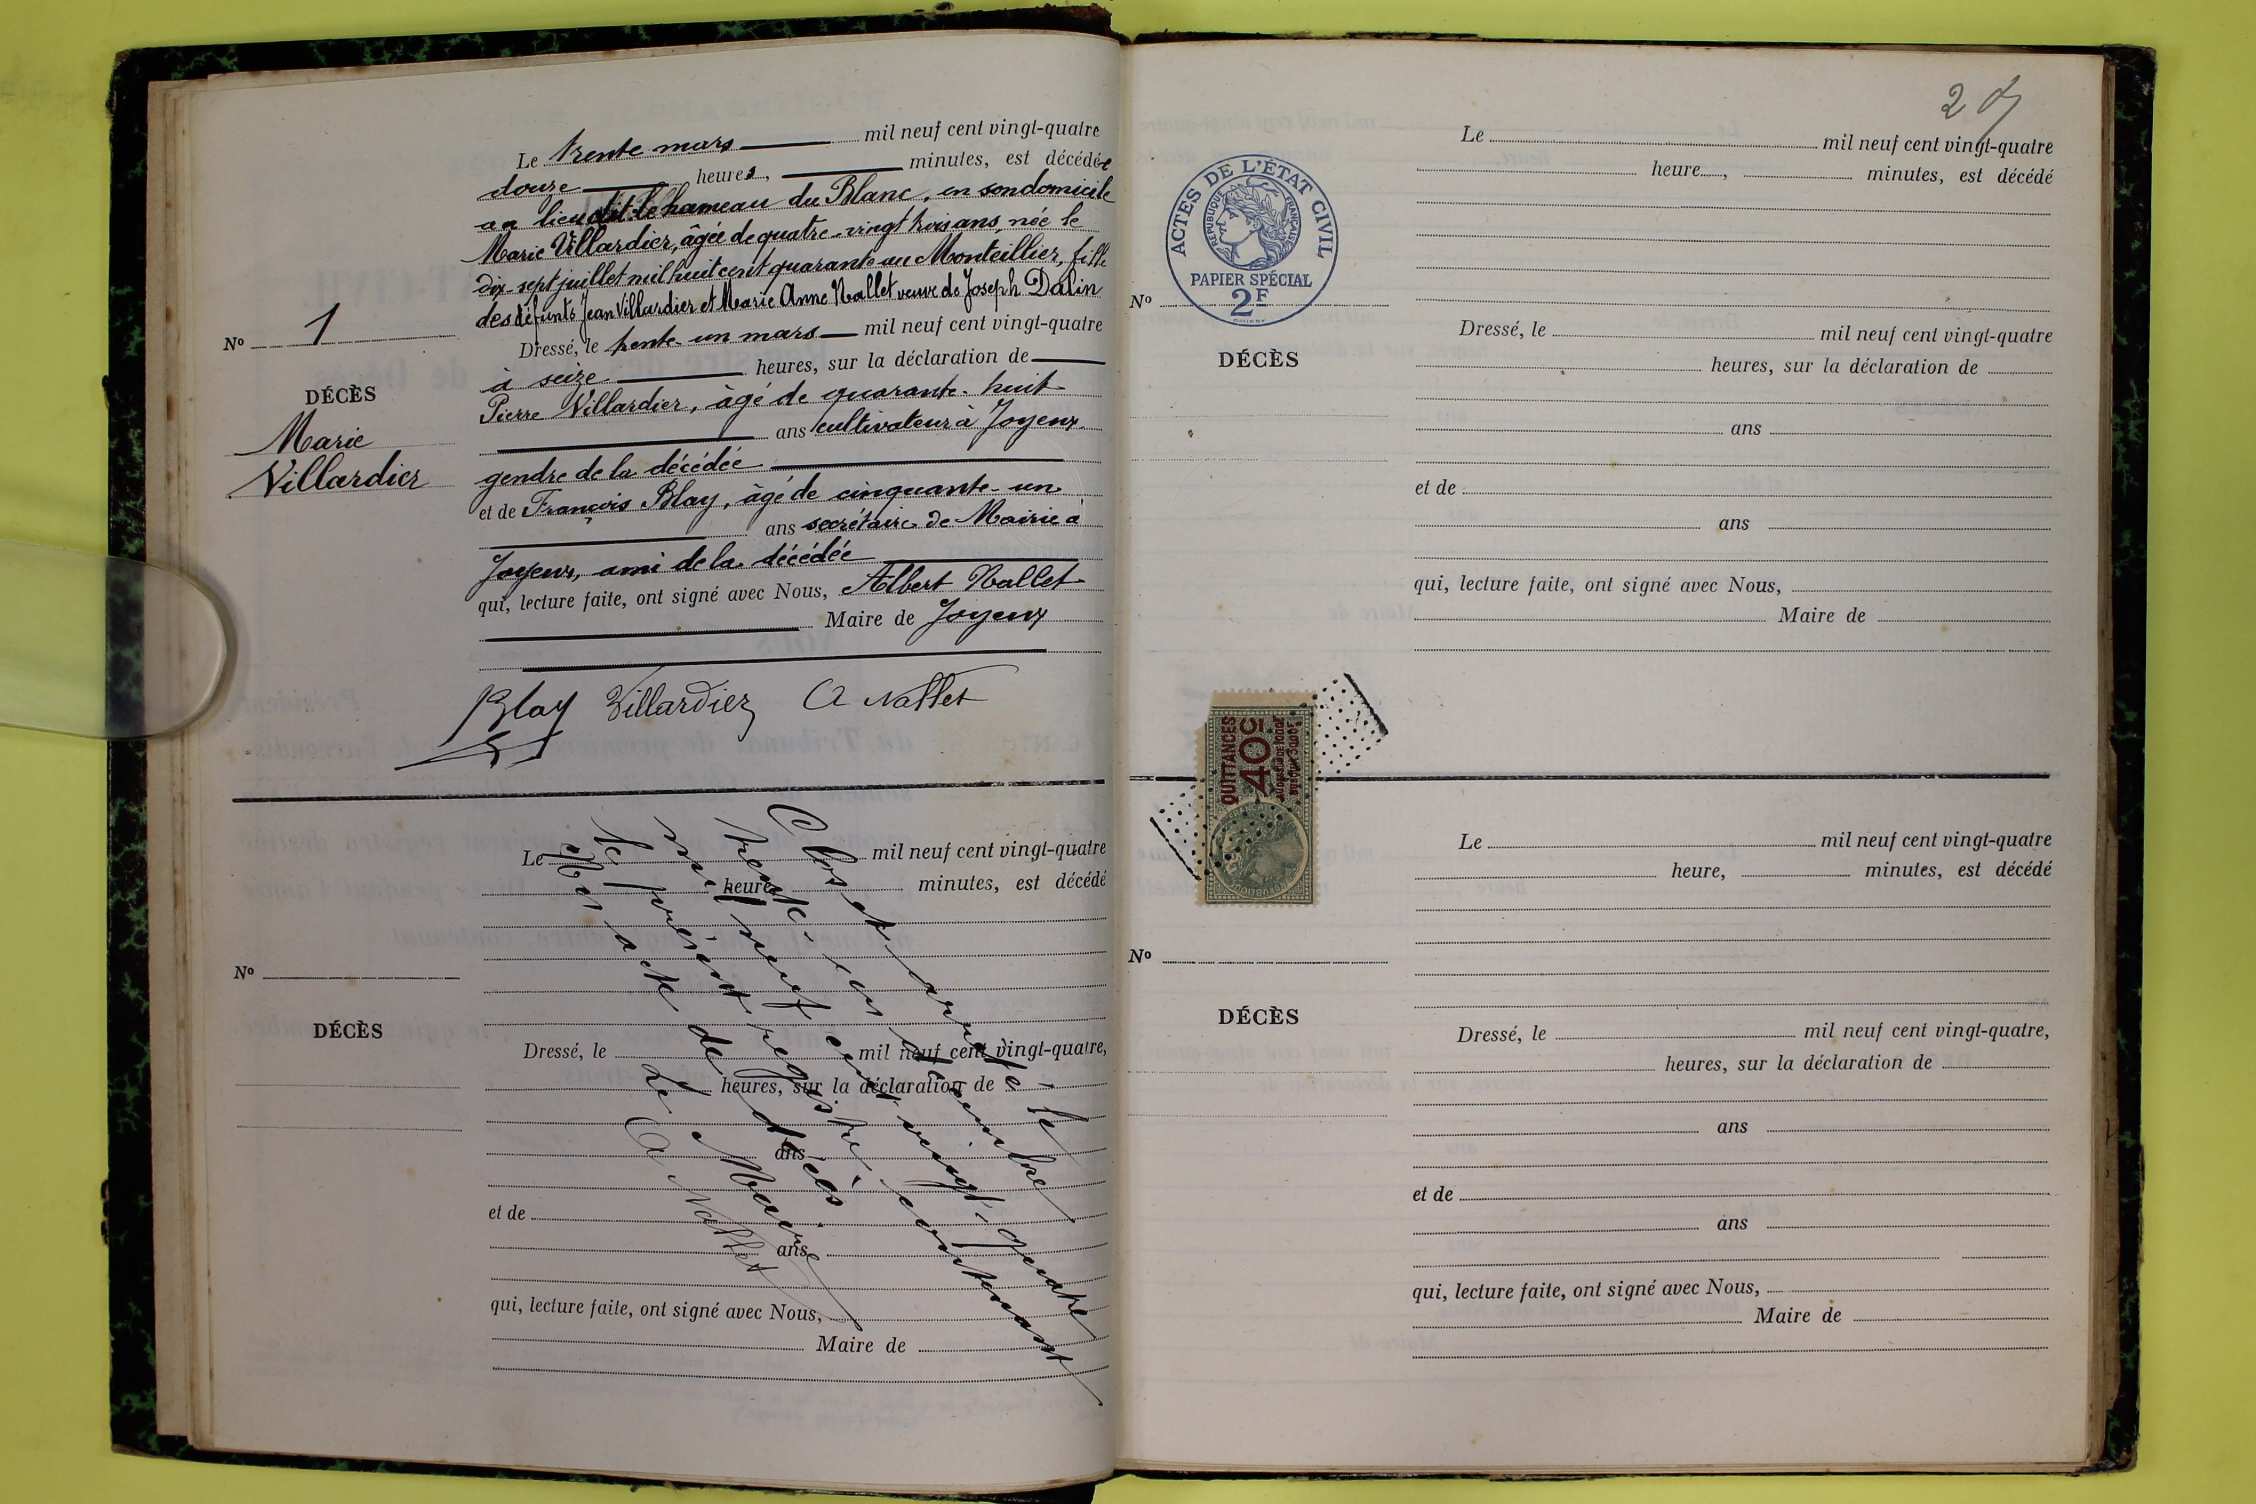 Le trente mars mil neuf cent vingt-quatre
douze heures, minutes, est décédée
au lieu dit le hameau du Blanc, en son domicile
Marie Villardier, âgée de quatre-vingt trois ans, née le
dix-sept juillet mil huit cent quarante au Monteillier, fille
des défunts Jean Villardier et Marie Anne Nallet veuve de Joseph Dalin
Dressé, le trente-un mars mil neuf cent vingt-quatre
à seize heures, sur la déclaration de
Pierre Villardier, âgé de quarante-huit
ans cultivateur à Joyeux
gendre de la décédée
et de François Blay, âgé de cinquante-un
ans secrétaire de Mairie à
Joyeux, ami de la décédée
qui, lecture faite, ont signé avec Nous, Albert Nallet
Maire de Joyeux
Blay Villardier A Nallet
No 1
DÉCÈS
Marie
Villardier
Le mil neuf cent vingt-quatre
heure minutes, est décédé
No
DÉCÈS
Dressé, le mil neuf cent vingt-quatre,
heures, sur la déclaration de
ans
et de
ans
qui, lecture faite, ont signé avec Nous,
Maire de
Clos et arrêté le
trente-un décembre
mil neuf cent vingt-quatre
le présent registre contenant
un acte de décès
Le Maire
A Nallet
2
ACTES DE L'ÉTAT CIVIL
RÉPUBLIQUE FRANÇAISE
PAPIER SPÉCIAL
2F
Le mil neuf cent vingt-quatre
heure, minutes, est décédé
No
DÉCÈS
Dressé, le mil neuf cent vingt-quatre
heures, sur la déclaration de
ans
et de
ans
qui, lecture faite, ont signé avec Nous,
Maire de
QUITTANCES
40c
Le mil neuf cent vingt-quatre
heure, minutes, est décédé
No
DÉCÈS
Dressé, le mil neuf cent vingt-quatre,
heures, sur la déclaration de
ans
et de
ans
qui, lecture faite, ont signé avec Nous,
Maire de